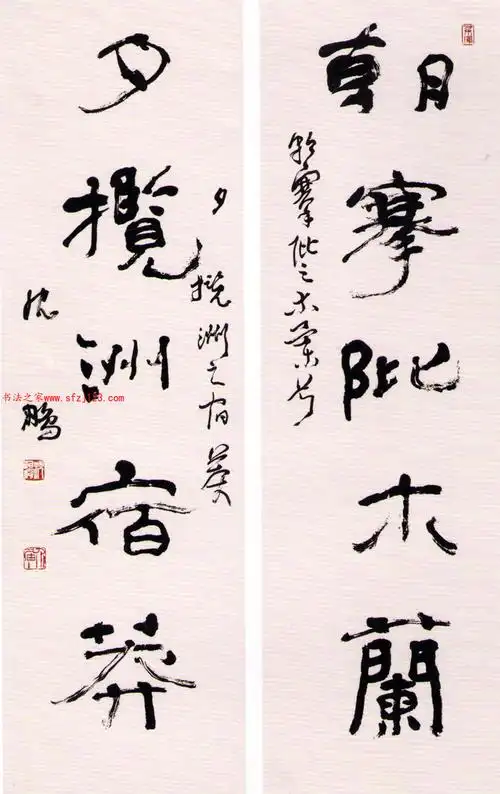 朝搴阰木蘭
朝搴阰之木蘭兮
夕攬洲宿莽
夕攬洲之宿莽
沈鵬
书法之家www.sfzj123.com